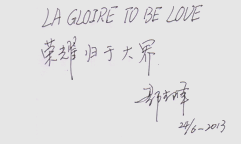 LA GLOIRE TO BE LOVE
荣耀归于大界
24/6-2013